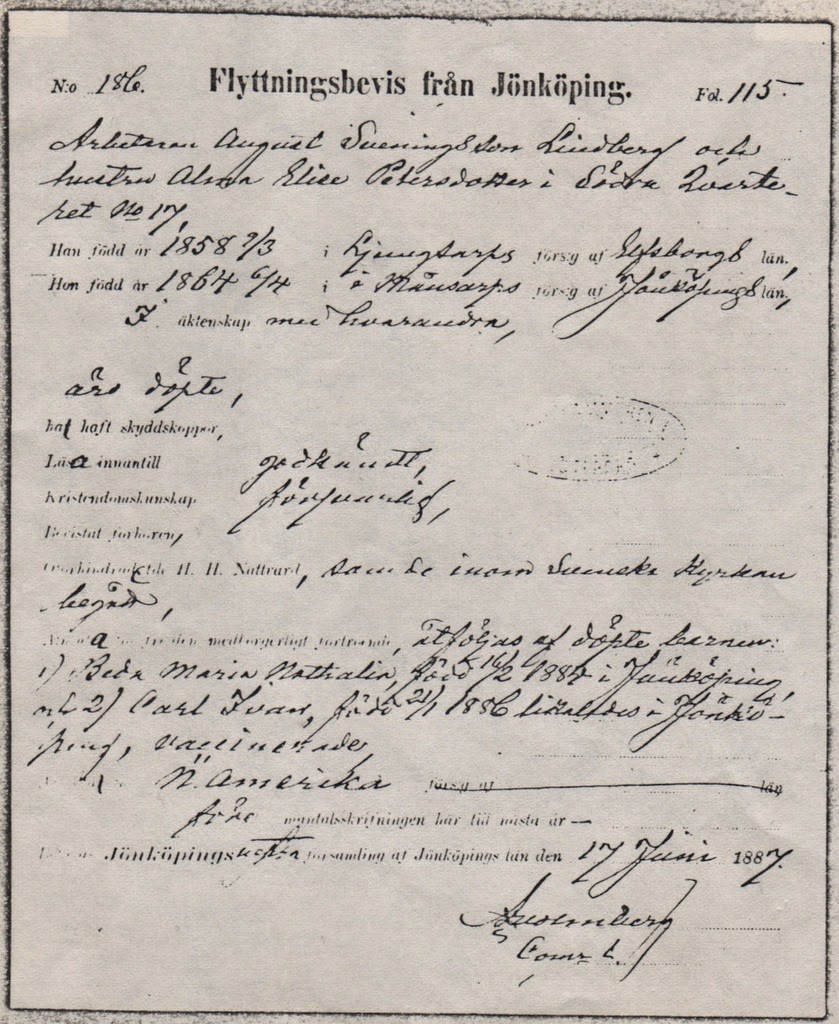 N:o 186. Flyttningsbevis från Jönköping. Fol. 115.
Arbetaren August Sveningsson Lindberg och
hustru Alma Elise Petersdotter i Södra Qvarte-
ret No 17,
Han född år 1858 7/3 i Ljungsarps förs:g af Elfsborgs län,
Hon född år 1864 6/4 i Månsarps förs:g af Jönköpings län,
I äktenskap med hvarandra,
äro döpte,
haf haft skyddskoppor,
Läsa innantill godkändt,
Kristendomskunskap försvarlig,
Bevistat förhören,
H. H. Nattvard, samde inom Svenska Kyrkan
begått,
medborgerligt förtroende, åtföljas af döpte barnen:
1) Beda Maria Nathalia, född 16/2 1884 i Jönköping,
och 2) Carl Ivan, född 21/1 1886 likaledes i Jönkö-
ping, vaccinerade,
N. Amerika förs:g af län
före mantalsskrifningen här tid nästa år —
Jönköpings vestra församling af Jönköpings län den 17 Juni 1887.
Comr